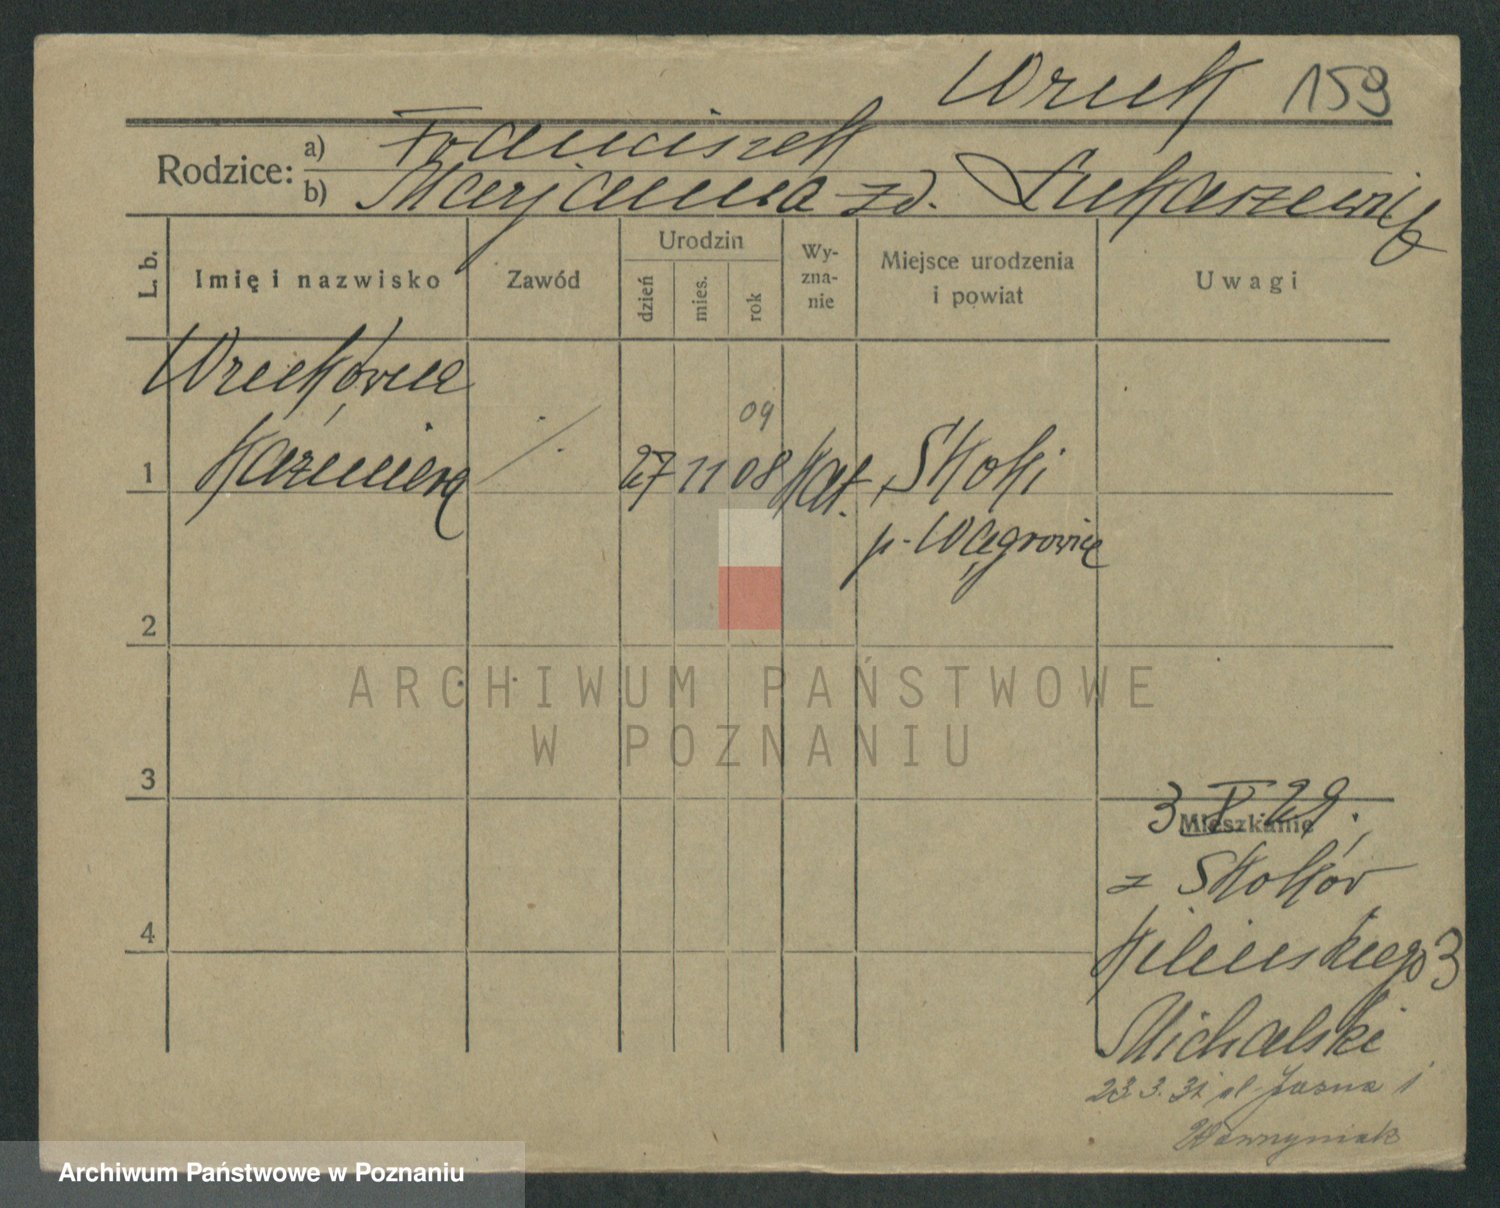 Wruk 159
Rodzice: a) Franciszek
b) Marjanna zd. Łukaszewicz
L. b. Imię i nazwisko Zawód Urodzin dzień mies. rok Wy-zna-nie Miejsce urodzenia i powiat Uwagi
Wrukówna
09
1 Kazimiera 27 11 08 Kat. Skoki
p. Wągrowiec
2
ARCHIWUM PAŃSTWOWE
W POZNANIU
3
3 V 29.
Mieszkanie
z Skoków
4
Kilińskiego 3
Michalski
23.3.31 ul. Jasna 1
Wawrzyniak
Archiwum Państwowe w Poznaniu